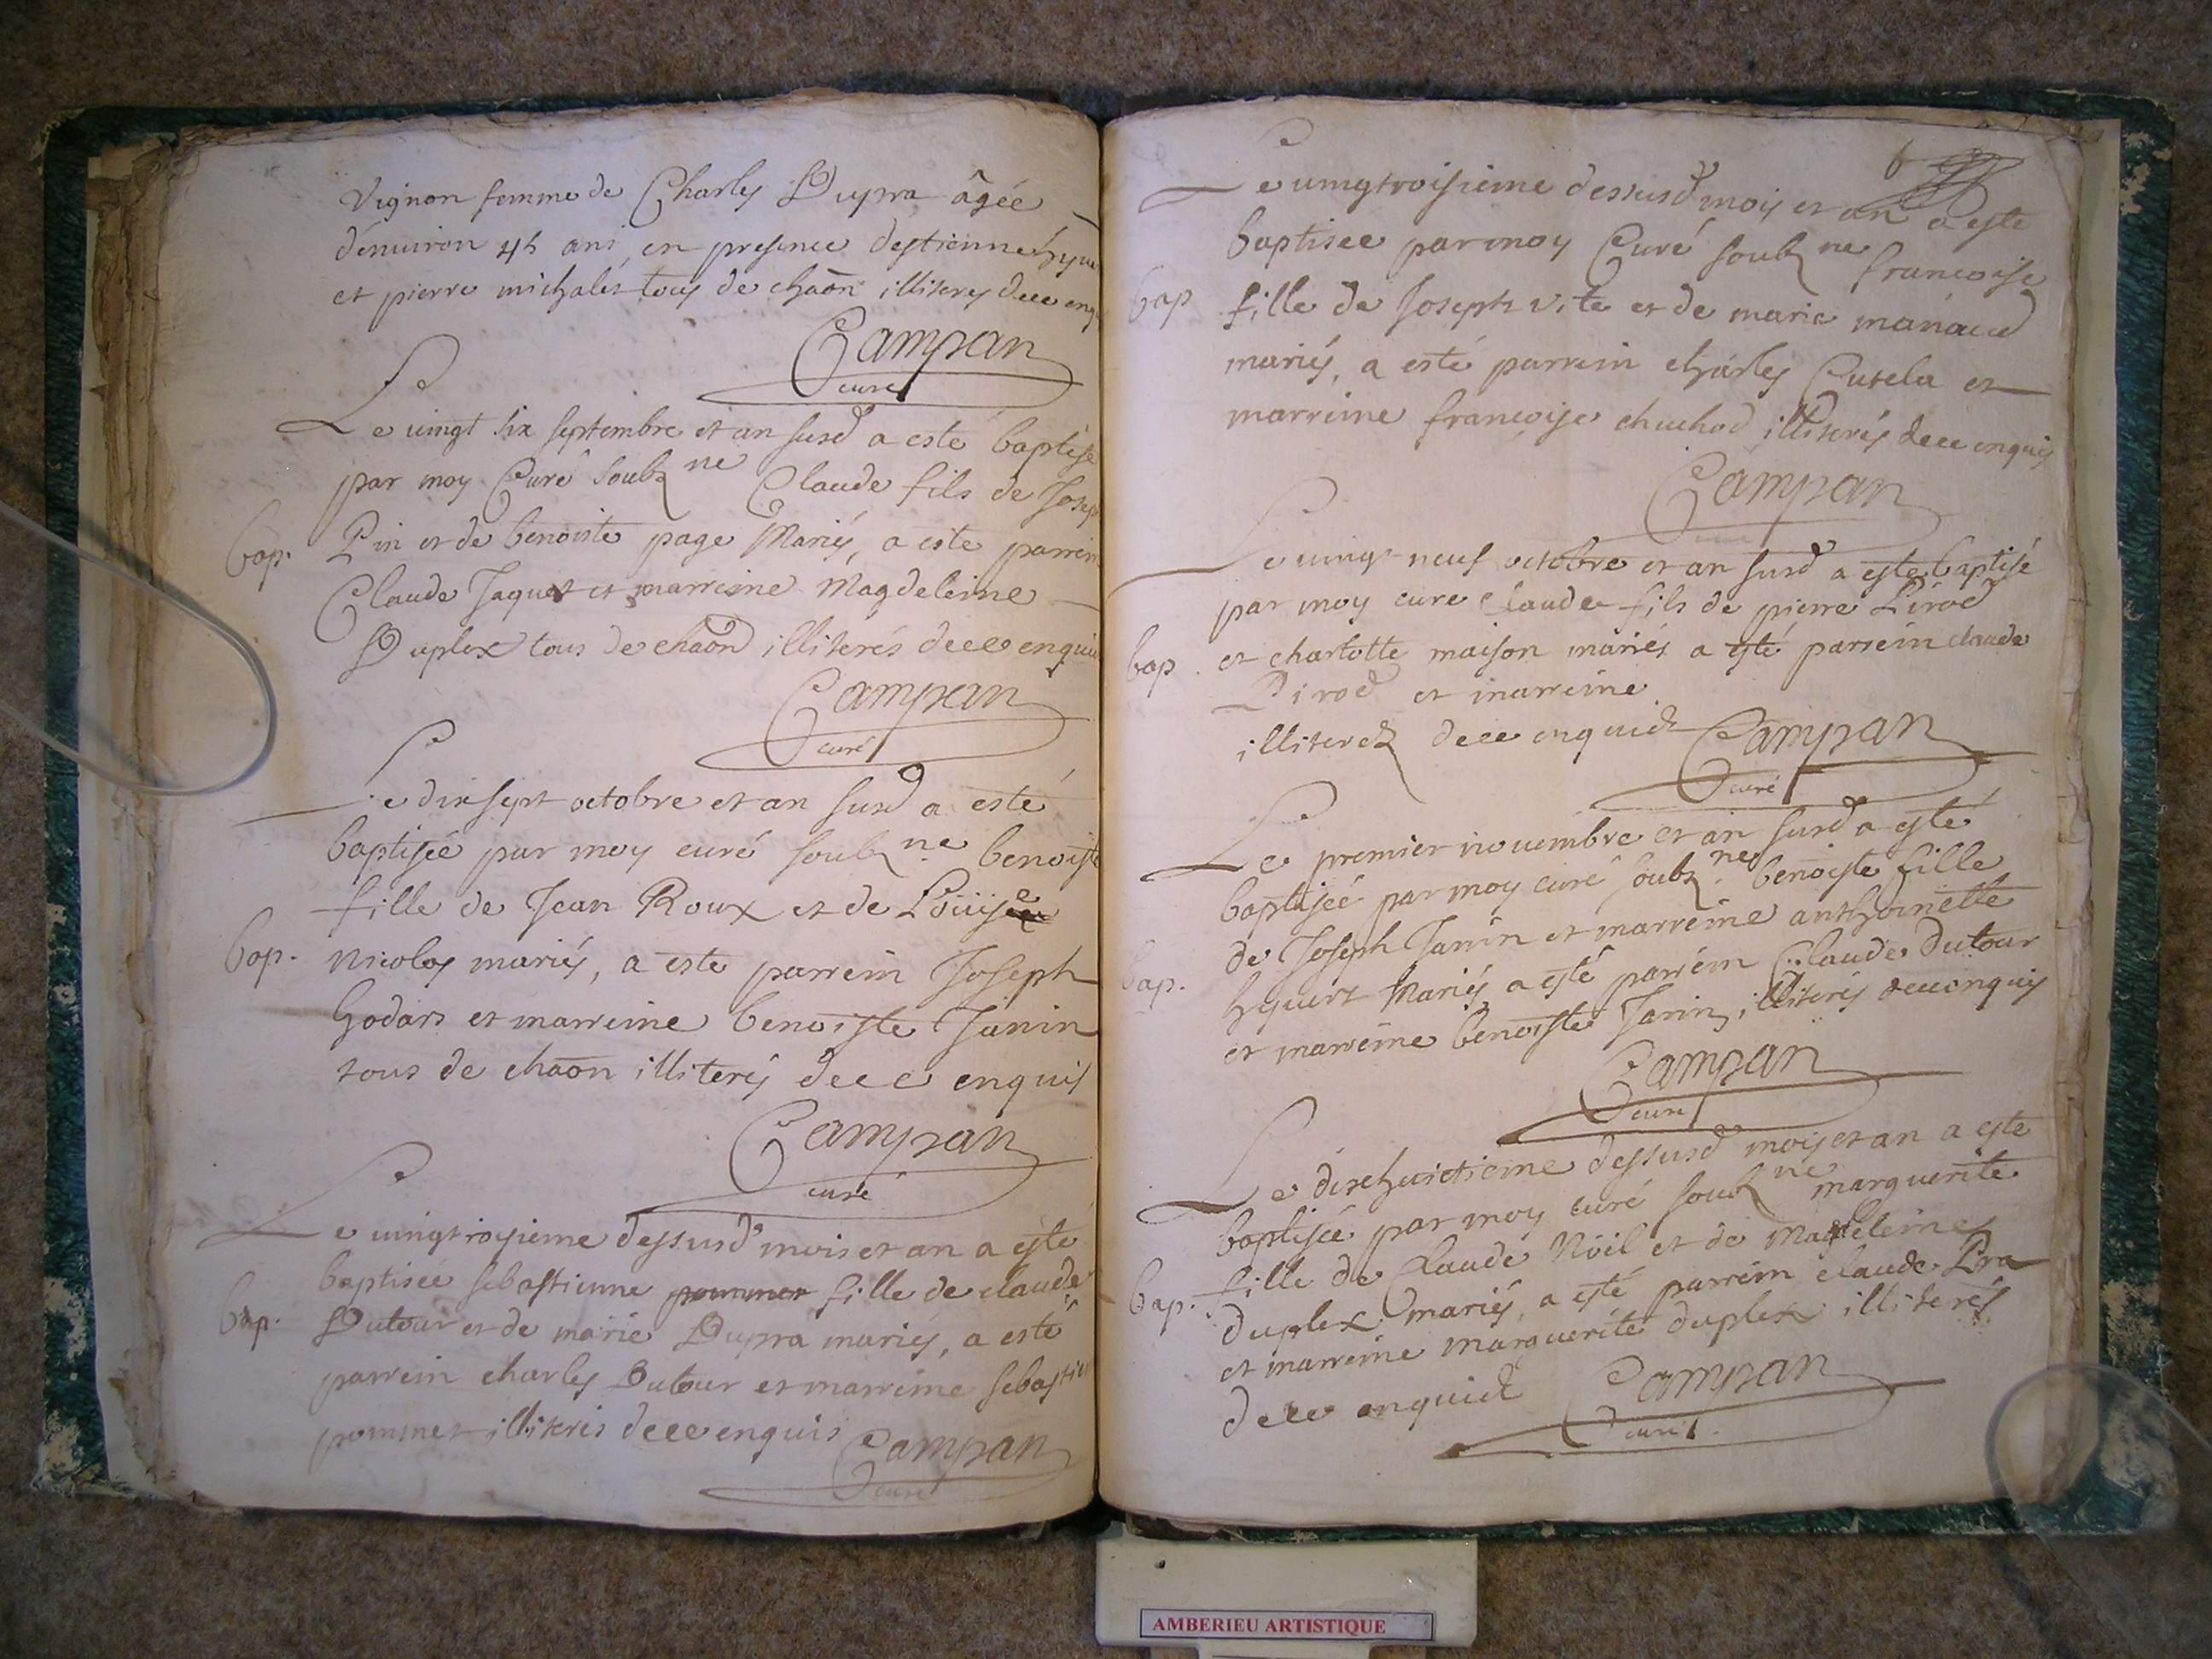 Vignon femme de Charles Dupra âgée
d'enuiron 45 ans, en presence destienne hyue
et pierre michalet tous de chaōn illiteres dece enq
Campan
curé
Le uingt six septembre et an susd a esté baptisé
par moy Curé soubz ne Claude fils de Josep
bap. Pin et de benoiste page Mariés, a este parrein
Claude Jaquet et marreine Magdeleine
Duplex tous de chaōn illiterés dece enquis
Campan
curé
Le dixsept octobre et an susd a esté
baptisée par moy curé soubz ne benoiste
fille de Jean Roux et de Louise
bap. Nicolas mariés, a este parrein Joseph
Godars et marreine benoiste Janin
tous de chaōn illiterés dece enquis
Campan
curé
Le uingtroisieme dessusd mois et an a esté
baptisée sebastienne pommet fille de claude
bap. Dutour et de marie Dupra mariés, a esté
parrein charles Dutour et marreine sebastien
pommet illiterés dece enquis
Campan
curé
6
Le uingtroisieme dessusd mois et an a esté
baptisee par moy Curé soubz ne francoise
bap fille de Joseph vite et de marie manaud
mariés, a esté parrein charles Cutela et
marreine francoise chuchod illiterés dece enquis
Campan
Le uingt neuf octobre et an susd a esté baptisé
par moy cure Claude fils de pierre Pirod
bap. et charlotte maison mariés a esté parrein claude
Pirod et marreine
illiterez dece enquid
Campan
curé
Le premier nouembre et an susd a esté
baptisée par moy curé soubz ne benoiste fille
de Joseph Janin et marreine anthoinette
bap. hyuert Mariés a esté parrein Claude dutour
et marreine benoiste Janin, illiterés dece enquis
Campan
curé
Le dixhuictieme dessusd mois et an a esté
baptisée par moy curé soubz ne marguerite
bap. fille de Claude Nöil et de Magdeleine
duplex mariés, a esté parrein claude Pra
et marreine marguerite duplex illiterés
dece enquid
Campan
curé
AMBERIEU ARTISTIQUE